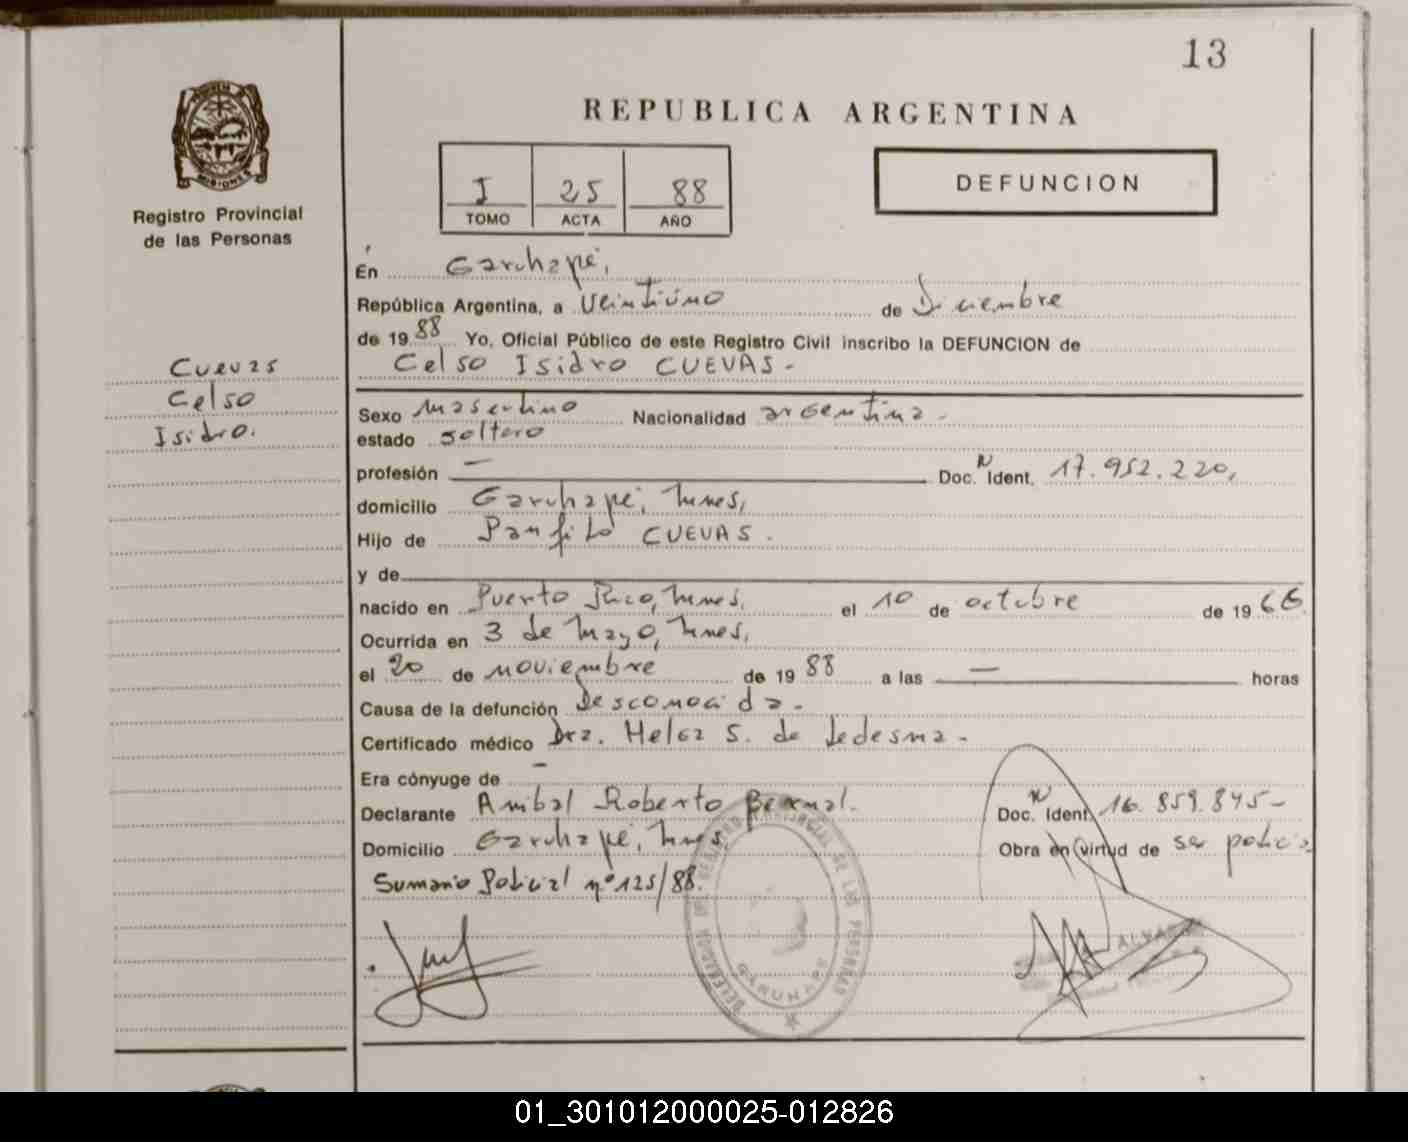 13
REPUBLICA ARGENTINA
I 25 88
TOMO ACTA AÑO
DEFUNCION
MISIONES
Registro Provincial
de las Personas
Cuevas
Celso
Isidro.
En Garuhapé,
República Argentina, a veintiúno de Diciembre
de 1988 Yo, Oficial Público de este Registro Civil inscribo la DEFUNCION de
Celso Isidro CUEVAS -
Sexo masculino Nacionalidad argentina -
estado soltero
profesión — Doc. N Ident. 17.952.220,
domicilio Garuhapé, Mnes,
Hijo de Panfilo CUEVAS.
y de
nacido en Puerto Rico, Mnes, el 10 de octubre de 1966
Ocurrida en 3 de Mayo, Mnes,
el 20 de noviembre de 1988 a las — horas
Causa de la defunción Desconocida -
Certificado médico Dra. S. de Ledesma -
Era cónyuge de —
Declarante Anibal Roberto Bernal. Doc. N Ident. 16.859.845-
Domicilio Garuhapé, Mnes Obra en virtud de ser policia
Sumario Policial nº 125/88.
DELEGACION DEL REGISTRO PROVINCIAL DE LAS PERSONAS
GARUHAPE
01_301012000025-012826